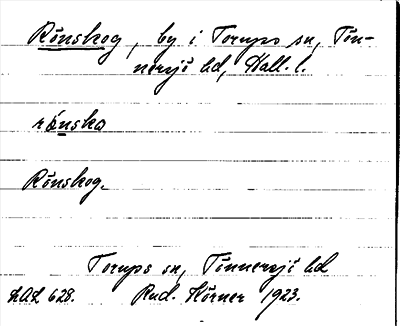 Rönskog, by i Torups sn, Tön-
nersjö hd, Hall. l.
rö́nsko
Rönskog.
Torups sn, Tönnersjö hd
LAL 628. Rud. Körner 1923.